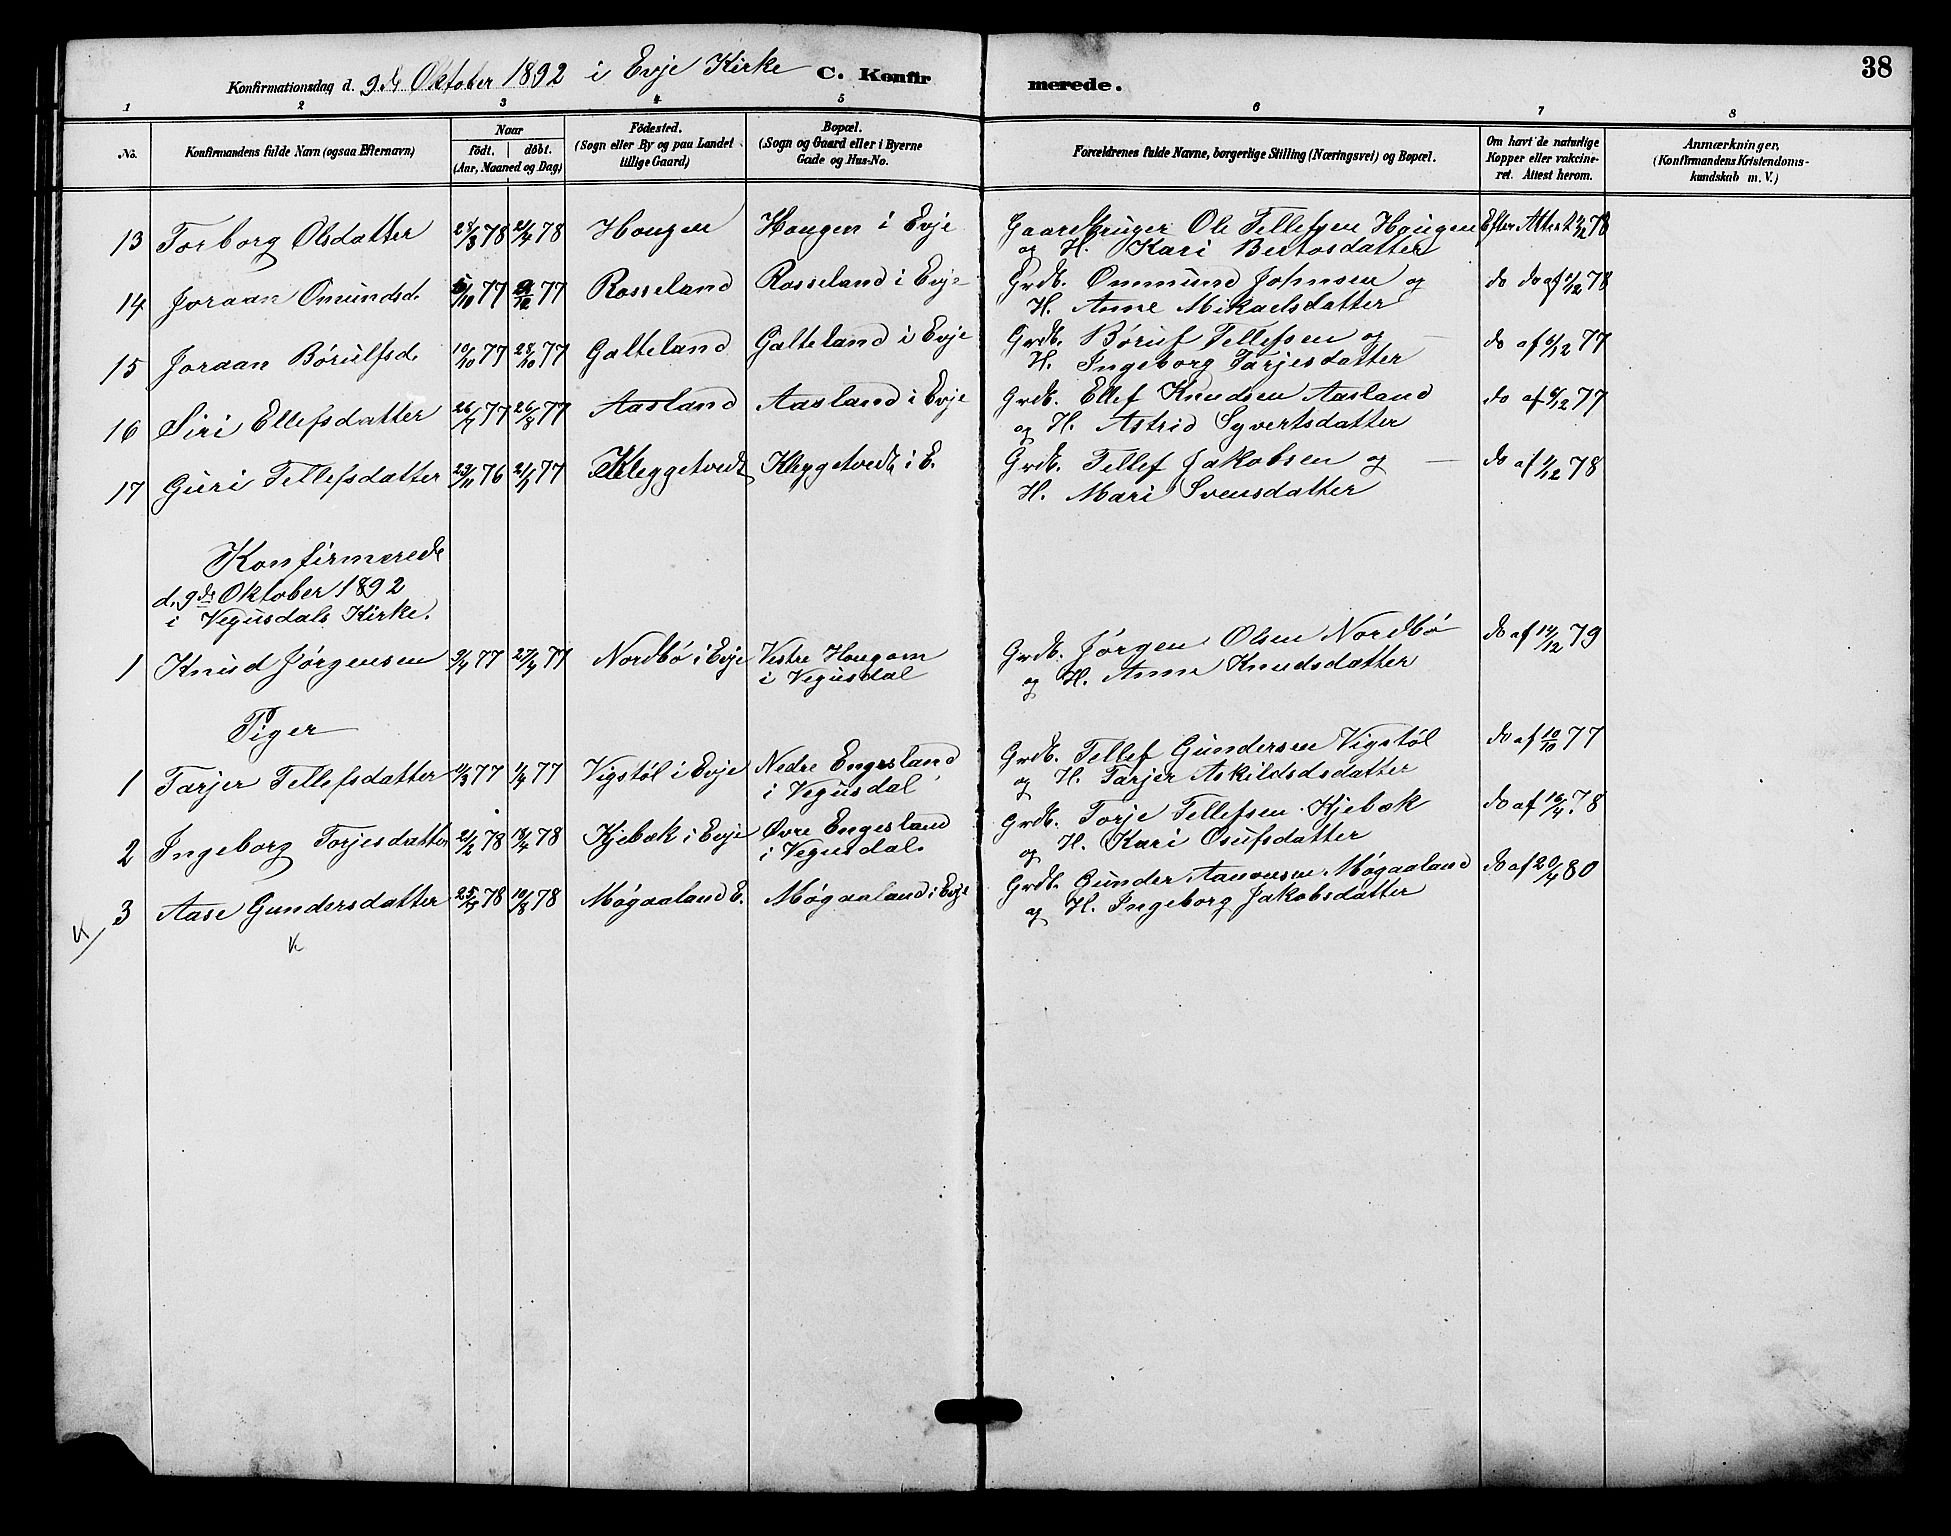 38
Konfirmationsdag d. 9de Oktober 1892 i Evje Kirke C. Konfirmerede.
1 2 3 4 5 6 7 8
No.
Konfirmandens fulde Navn (ogsaa Efternavn)
Naar
födt. döbt.
(Aar, Maaned og Dag)
Födested.
(Sogn eller By og paa Landet
tillige Gaard)
Bopæl.
(Sogn og Gaard eller i Byerne
Gade og Hus-No.
Forældrenes fulde Navne, borgerlige Stilling (Næringsvei) og Bopæl.
Om havt de naturlige
Kopper eller vakcine-
ret. Attest herom.
Anmærkninger,
(Konfirmandens Kristendoms-
kundskab m. V.)
13 Torborg Olsdatter 28/3 78 21/4 78 Hougen Hougen i Evje Gaardbruger Ole Tellefsen Hougen Efter Attest 78
og H. Kari Bentosdatter
14 Joraan Omundsd. 5/10 77 77 Rosseland Rosseland i Evje Grdb. Ommund Johnsen og do do af 1/12 78
H. Anne Mikaelsdatter
15 Joraan Børulfsd. 10/10 77 28/10 77 Galteland Galteland i Evje Grdb. Børuf Tellefsen og do af 6/12 77
H. Ingeborg Tarjesdatter
16 Siri Ellefsdatter 77 77 Aasland Aasland i Evje Grdb. Ellef Knudsen Aasland do af 6/12 77
og H. Astrid Syvertsdatter
17 Guri Tellefsdatter 29/11 76 21/1 77 Kleggetvedt Kleggetvedt i E. Grdb. Tellef Jakobsen og do af 1/12 78
H. Mari Svensdatter
Konfirmerede
d. 9de Oktober 1892
i Vegusdals Kirke.
1 Knud Jørgensen 77 77 Nordbø i Evje Vestre Hougom Grdb. Jørgen Olsen Nordbø do af 14/12 79
i Vegusdal og H. Anne Knudsdatter
Piger
1 Tarjer Tellefsdatter 11/3 77 1/4 77 Vigstøl i Evje Nedre Engesland Grdb. Tellef Gundersen Vigstøl do af 10/10 77
i Vegusdal og H. Tarjer Askildsdsdatter
2 Ingeborg Torjesdatter 21/2 78 78 Kjebæk i Evje Øvre Engesland Grdb. Torje Tellefsen Kjebæk do af 16/4 78
i Vegusdal. og H. Kari Osufsdatter
3 Aase Gundersdatter 78 10/8 78 Møgaaland E. Møgaaland i Evje Grdb. Gunder Aanonsen Møgaaland do af 20/4 80
og H. Ingeborg Jakobsdatter